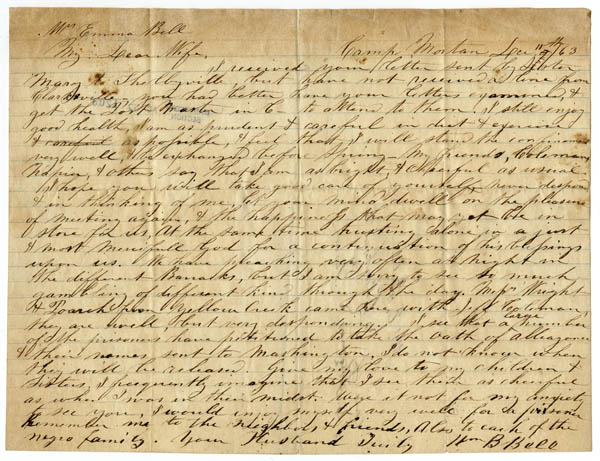 Mrs Emma Bell
My Dear Wife, Camp Morton Dec 63
I received your letter sent by Sister
Mary to Shelbyville, but have not received a line from
Clarksville, you had better have your letters examined, &
get the Post Master in C to attend to them, I still enjoy
good health, I am as prudent & careful in diet & exercise
& careful as possible, I feel that I will stand the confinement
very well, if exchanged before Spring. My friends, Coleman,
Napier, & others say that I am as bright, & cheerful as usual
I hope you will take good care of yourself never despond
& in thinking of me, let your mind dwell on the pleasure
of meeting again, & the happiness that may yet be in
store for us, At the same time trusting alone in a just
& most Merciful God for a continuation of his blessings
upon us. We have preaching very often at night in
the different Barracks, but I am sorry to see so much
gambling of different kind through the day. Messrs Wright
& from Yellow Creek came here with J. Coleman,
they are well, but very desponding. I see that a large number
of the prisoners have petitioned to take the oath of allegiance
& their names sent to Washington, I do not know when
they will be released. Give my love to my children &
sisters, I frequently imagine that I see them as cheerful
as when I was in their midst. Were it not for my anxiety
to see you, I would enjoy myself very well for a prisoner
Remember me to the neighbors & friends, Also to each of the
negro family. Your Husband Truly Wm B Bell